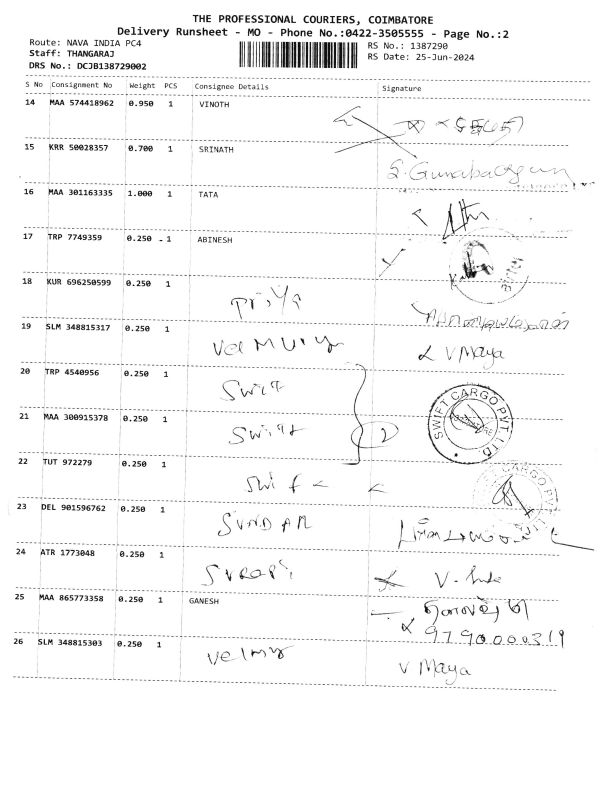 THE PROFESSIONAL COURIERS, COIMBATORE
Delivery Runsheet - MO - Phone No.:0422-3505555 - Page No.:2
Route: NAVA INDIA PC4 RS No.: 1387290
Staff: THANGARAJ RS Date: 25-Jun-2024
DRS No.: DCJB138729002
S No Consignment No Weight PCS Consignee Details Signature
14 MAA 574418962 0.950 1 VINOTH
15 KRR 50028357 0.700 1 SRINATH
16 MAA 301163335 1.000 1 TATA
17 TRP 7749359 0.250 1 ABINESH
18 KUR 696250599 0.250 1 Priya
19 SLM 348815317 0.250 1 V Maya
20 TRP 4540956 0.250 1 Swift
21 MAA 300915378 0.250 1 Swift 2 SWIFT CARGO PVT. LTD.
22 TUT 972279 0.250 1 Swift
23 DEL 901596762 0.250 1 SUNDAR
24 ATR 1773048 0.250 1
25 MAA 865773358 0.250 1 GANESH
9790000319
26 SLM 348815303 0.250 1 V Maya